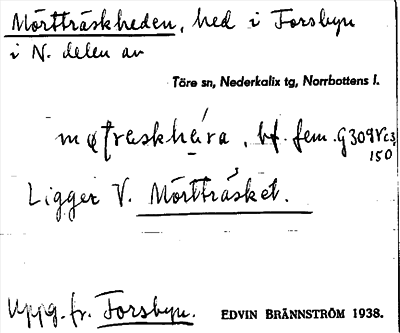 Mörtträskheden, hed i Forsbyn
i N. delen av
Töre sn, Nederkalix tg, Norrbottens l.
bf. fem.
Ligger V. Mörtträsket.
Uppg. fr. Forsbyn. EDVIN BRÄNNSTRÖM 1938.